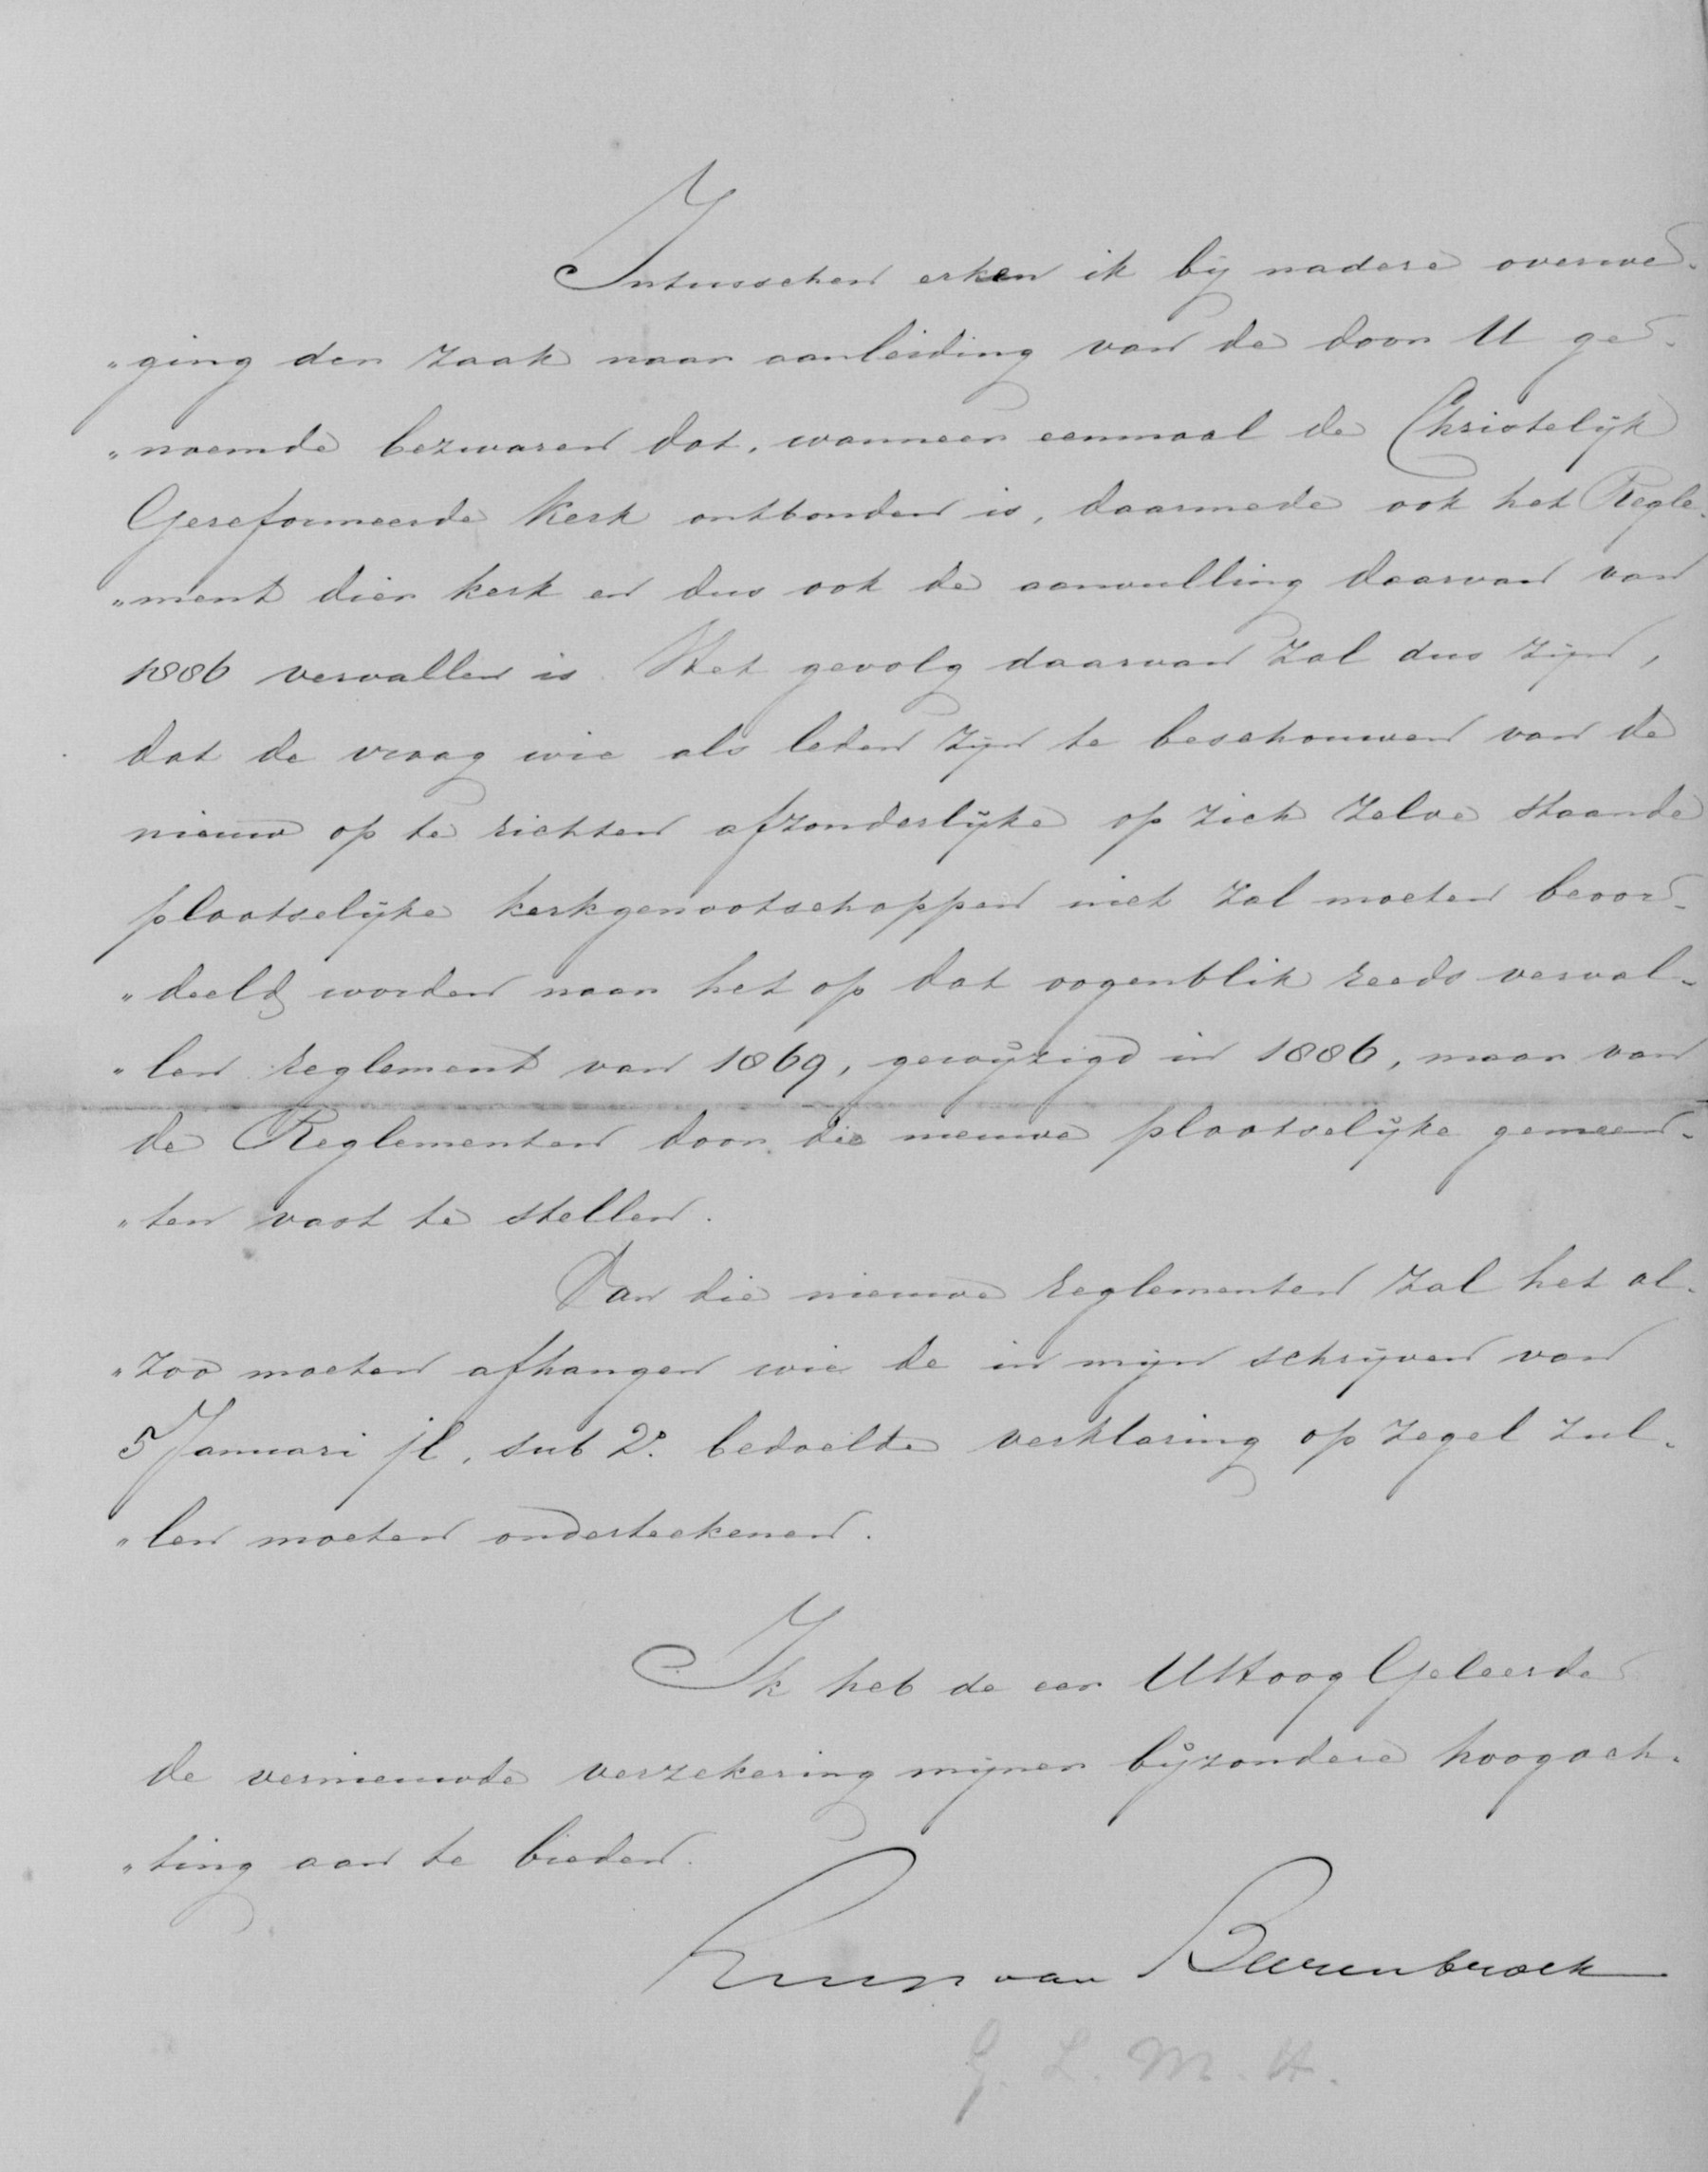 Intusschen erken ik bij nadere overwe-
"ging der zaak naar aanleiding van de door U ge-
"noemde bezwaren dat, wanneer eenmaal de Christelijk
Gereformeerde Kerk ontbonden is, daarmede ook het Regle-
"ment dier kerk en dus ook de aanvulling daarvan van
1886 vervallen is. Het gevolg daarvan zal dus zijn,
dat de vraag wie als leden zijn te beschouwen van de
nieuw op te richten afzonderlijke op zich zelve staande
plaatselijke kerkgenootschappen niet zal moeten beoor-
"deeld worden naar het op dat oogenblik reeds verval-
"len reglement van 1869, gewijzigd in 1886, maar van
de Reglementen door die nieuwe plaatselijke gemeen-
"ten vast te stellen.
Van die nieuwe reglementen zal het al-
"zoo moeten afhangen wie de in mijn schrijven van
5 Januari jl, sub 2º. bedoelde verklaring op zegel zul-
"len moeten onderteekenen.
Ik heb de eer UHoogGeleerde
de vernieuwde verzekering mijner bijzondere hoogach-
"ting aan te bieden.
Ruys van Beerenbroek
G. L. M. H.